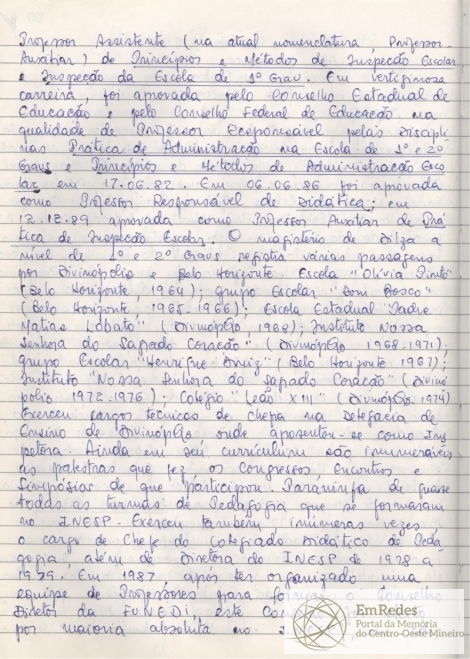 Professor Assistente (na atual nomenclatura, Professor
Auxiliar) de Princípios e Métodos de Inspecção Escolar
e Inspecção da Escola de 1º Grau. Em vertiginosa
carreira, foi aprovada pelo Conselho Estadual de
Educação e pelo Conselho Federal de Educação na
qualidade de Professor Responsável pelas Discipli-
nas Prática de Administração na Escola de 1º e 2º
Graus e Princípios e Métodos de Administração Esco
lar em 17.06.82. Em 06.06.86 foi aprovada
como Professor Responsável de Didática; em
12.12.89 aprovada como Professor Auxiliar de Prá
tica de Inspecção Escolar. O magistério de Dilza a
nível de 1º e 2º Graus registra várias passagens
por Divinópolis e Belo Horizonte. Escola "Olívia Pinto",
(Belo Horizonte, 1964); grupo Escolar "Dom Bosco"
(Belo Horizonte, 1965-1966); Escola Estadual "Padre
Matias Lobato" (Divinópolis, 1968); Instituto Nossa
Senhora do Sagrado Coração" (Divinópolis 1968-1971);
grupo Escolar "Henrique Diniz" (Belo Horizonte 1967);
Instituto "Nossa Senhora do Sagrado Coração" (Divinó
polis 1972-1976); Colégio "Leão XIII" (Divinópolis, 1974)
Exerceu cargos técnicos de chefia na Delegacia de
Ensino de Divinópolis onde aposentou-se como Ins
petora. Ainda em seu curriculum são inumeráveis
as palestras que fez, os Congressos, Encontros e
Simpósios de que participou. Paraninfa de quase
todas as turmas de Pedagogia que se formaram
no INESP. Exerceu também, inúmeras vezes,
o cargo de Chefe do Colegiado Didático de Peda
gogia, além de Diretora do INESP de 1978 a
1979. Em 1987, após ter organizado uma
equipe de Professores para formar o Conselho
Diretor da FUNEDI, este
por maioria absoluta no
EmRedes
Portal da Memória
do Centro-Oeste Mineiro